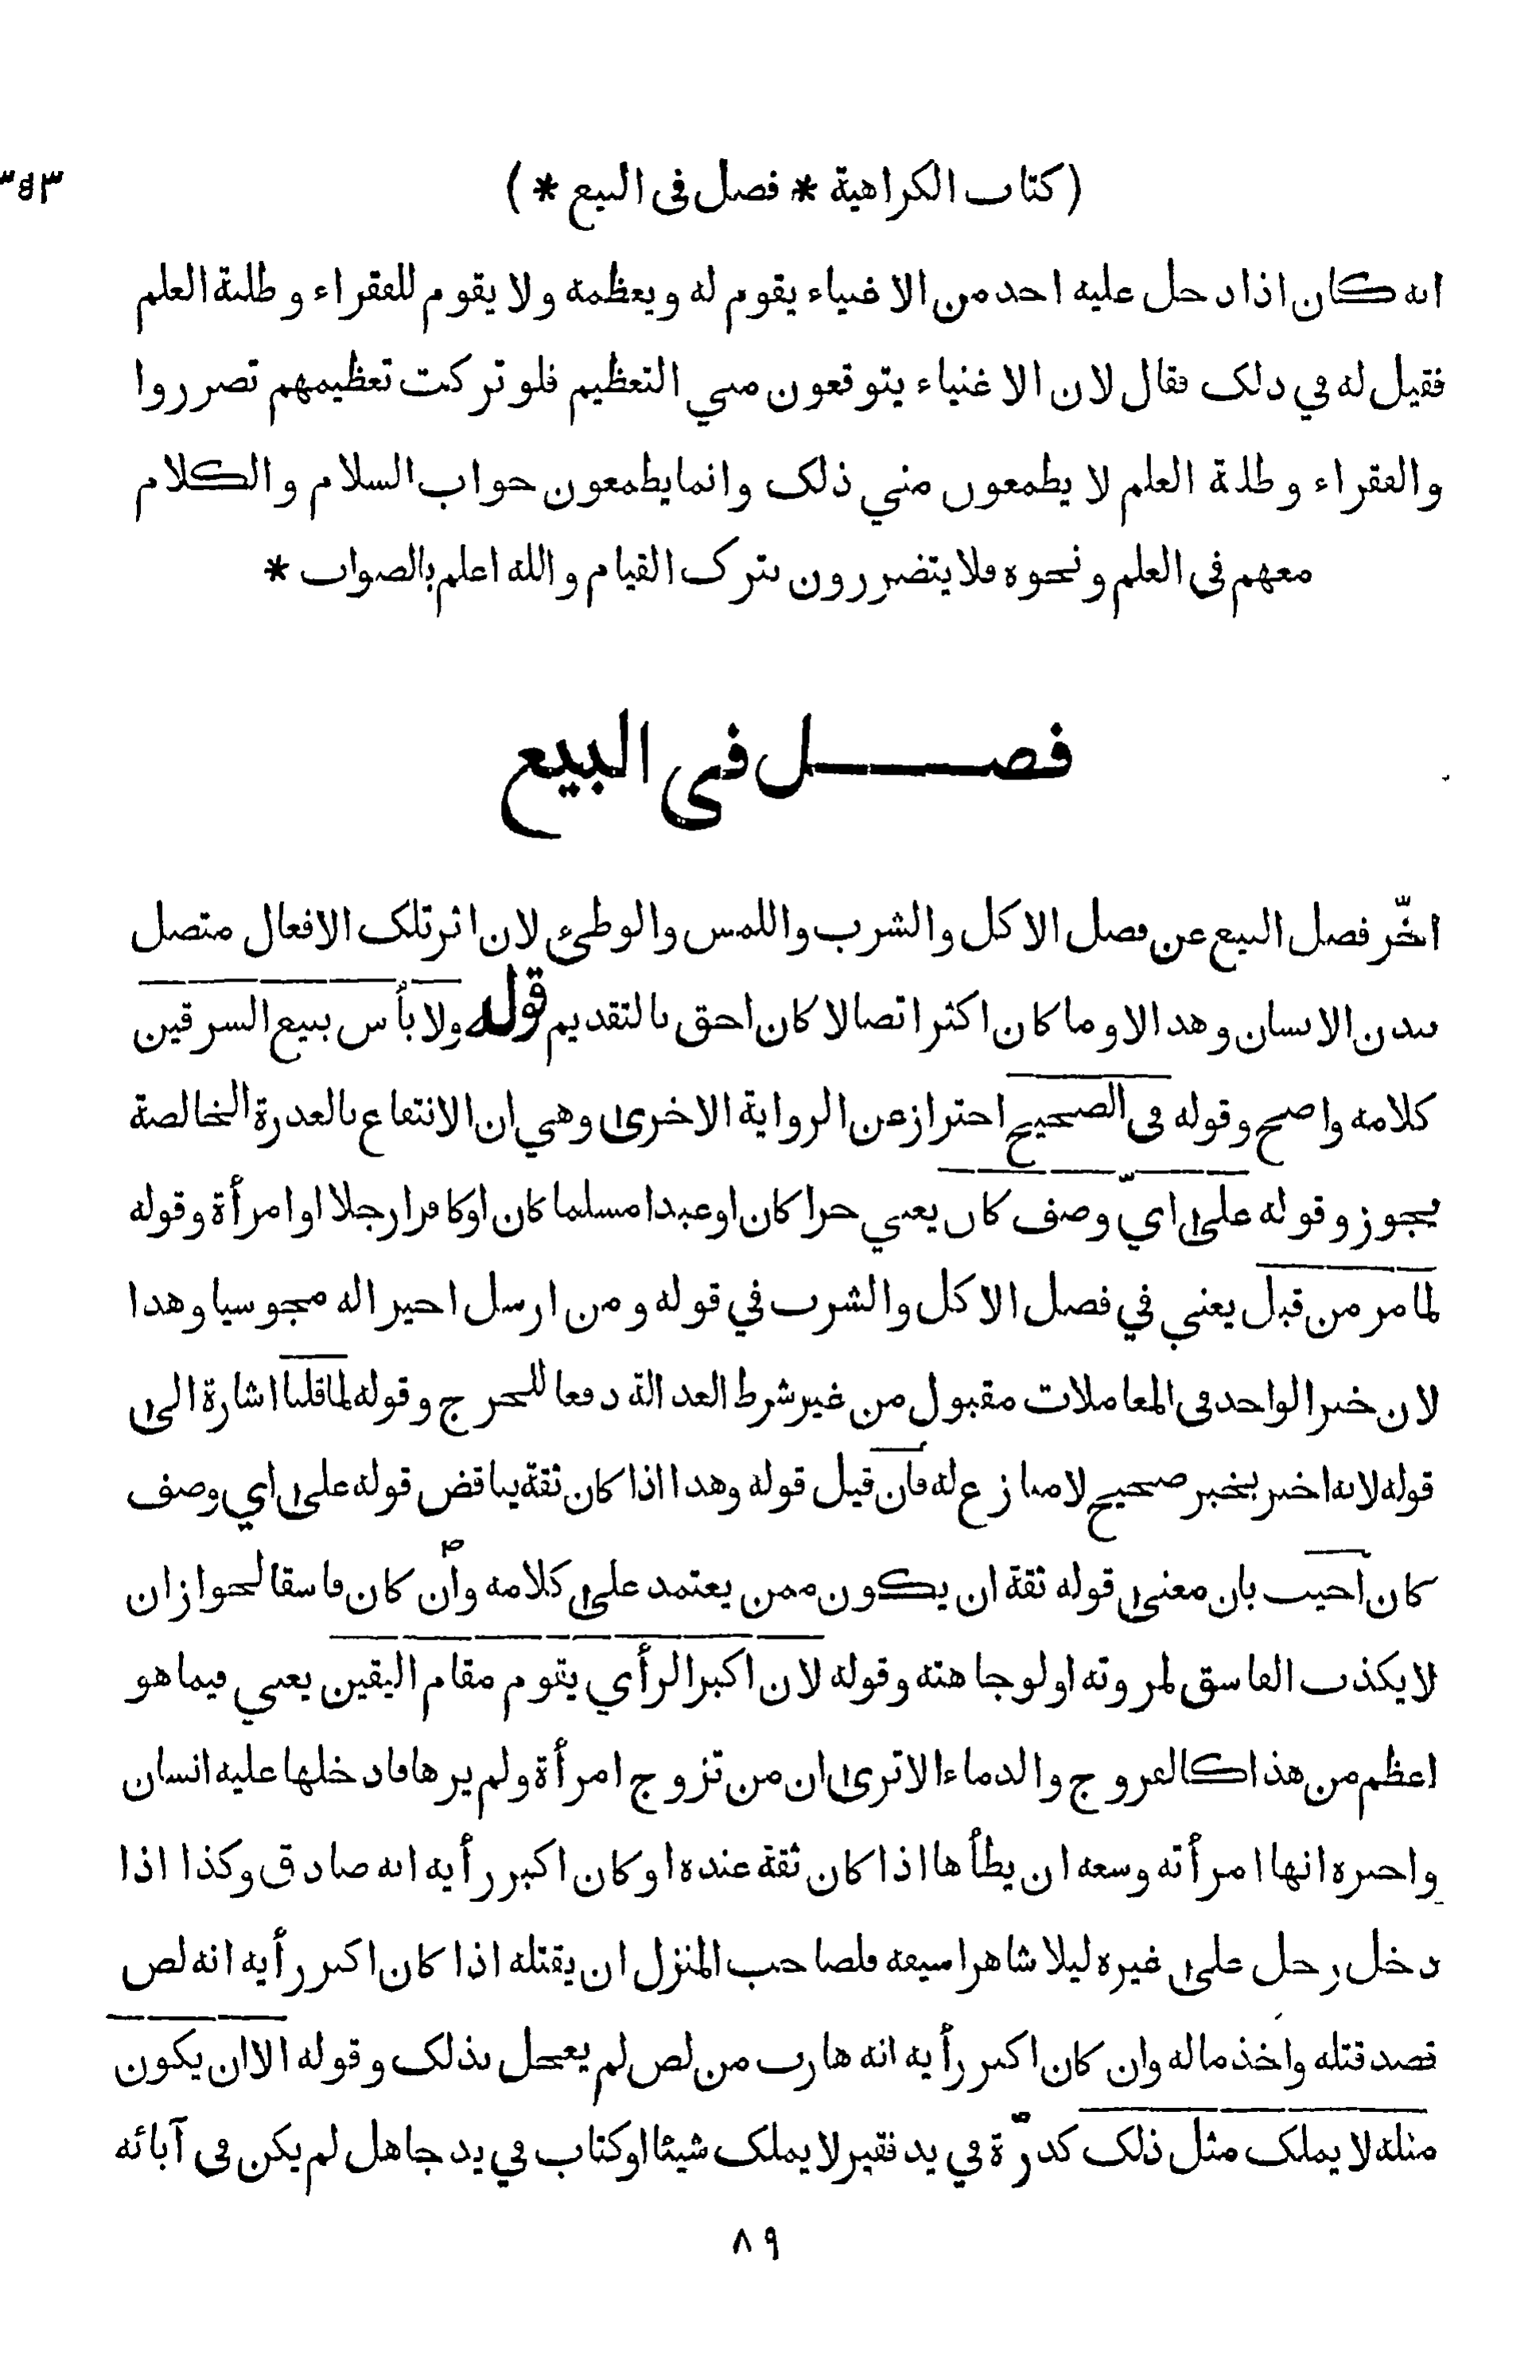 (كتاب الكراهية * فصل في البيع *) ٣٤٣
انه كان اذا دخل عليه احد من الاغنياء يقوم له ويعظمه ولا يقوم للفقراء وطلبة العلم
فقيل له في ذلك فقال لان الاغنياء يتوقعون مني التعظيم فلو تركت تعظيمهم تضرروا
والفقراء وطلبة العلم لا يطمعون مني ذلك وانما يطمعون جواب السلام والكلام
معهم في العلم ونحوه فلا يتضررون بترك القيام والله اعلم بالصواب *
فصل في البيع
اخّر فصل البيع عن فصل الاكل والشرب واللمس والوطئ لان اثر تلك الافعال متصل
ببدن الانسان وهذا لا وما كان اكثر اتصالا كان احق بالتقديم قوله ولا بأس ببيع السرقين
كلامه واضح وقوله في الصحيح احتراز عن الرواية الاخرى وهي ان الانتفاع بالعذرة الخالصة
يجوز وقوله على ايّ وصف كان يعني حرا كان او عبدا مسلما كان او كافرا رجلا او امرأة وقوله
لما مر من قبل يعني في فصل الاكل والشرب في قوله ومن ارسل اجيرا له مجوسيا وهذا
لان خبر الواحد في المعاملات مقبول من غير شرط العدالة دفعا للحرج وقوله لما قلنا اشارة الى
قوله لانه اخبر بخبر صحيح لا منازع له فان قيل قوله وهذا اذا كان ثقة يناقض قوله على اي وصف
كان اجيب بان معنى قوله ثقة ان يكون ممن يعتمد على كلامه وان كان فاسقا لجواز ان
لا يكذب الفاسق لمروته او لوجاهته وقوله لان اكبر الرأي يقوم مقام اليقين يعني فيما هو
اعظم من هذا كالفروج والدماء الا ترى ان من تزوج امرأة ولم يرها فادخلها عليه انسان
واخبره انها امرأته وسعه ان يطأها اذا كان ثقة عنده او كان اكبر رأيه انه صادق وكذا اذا
دخل رجل على غيره ليلا شاهرا سيفه فلصاحب المنزل ان يقتله اذا كان اكبر رأيه انه لص
قصد قتله واخذ ماله وان كان اكبر رأيه انه هارب من لص لم يعجل بذلك وقوله الا ان يكون
مثله لا يملك مثل ذلك كدرّة في يد فقير لا يملك شيئا او كتاب في يد جاهل لم يكن في آبائه
٨٩